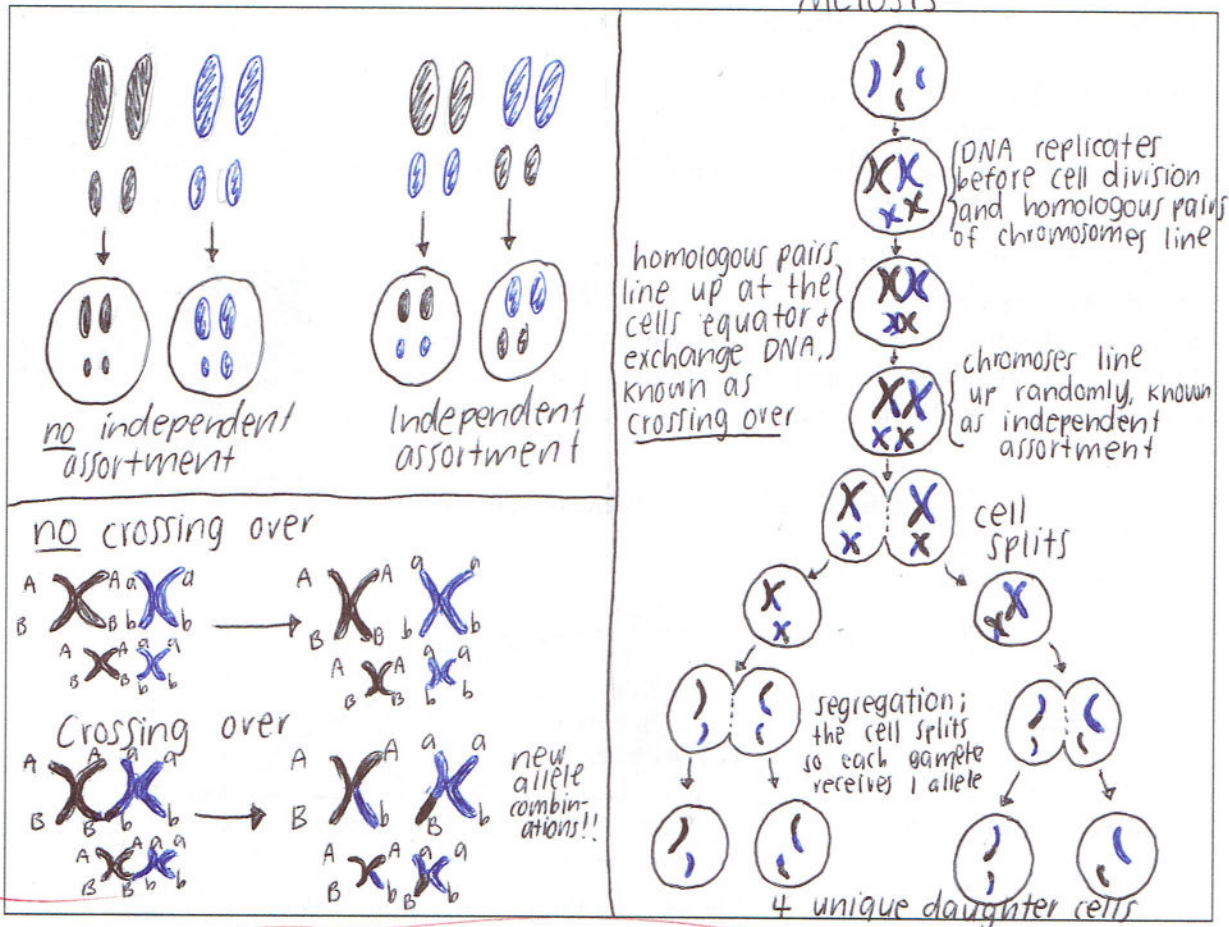 MEIOSIS
no independent
assortment
Independent
assortment
no crossing over
A A a a
B B b b
A A a a
B B b b
A A a a
B B b b
A A a a
B B b b
Crossing over
A A a a
B B b b
A A a a
B B b b
A A a a
B b B b
A A a a
B b B b
new
allele
combin-
ations!!
DNA replicates
before cell division
and homologous pairs
of chromosomes line
homologous pairs
line up at the
cells equator &
exchange DNA,
known as
crossing over
chromoses line
up randomly, known
as independent
assortment
cell
splits
segregation;
the cell splits
so each gamete
receives 1 allele
4 unique daughter cells